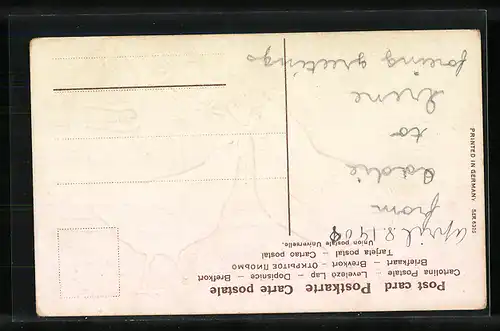 Post card Postkarte Carte postale
Cartolina Postale – Levelező Lap – Dopisnice – Brefkort
Briefkaart – Brevkort – ОТКРЫТОЕ ПИСЬМО
Tarjeta postal – Cartao postal
Union postale Universelle.
April 8. 1909
from
to
Irene
foreing greetings
PRINTED IN GERMANY. SER